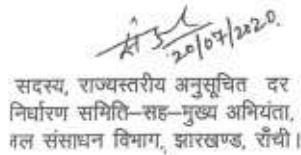 20/07/2020.
सदस्य, राज्यस्तरीय अनुसूचित दर
निर्धारण समिति–सह–मुख्य अभियंता,
जल संसाधन विभाग, झारखण्ड, राँची।